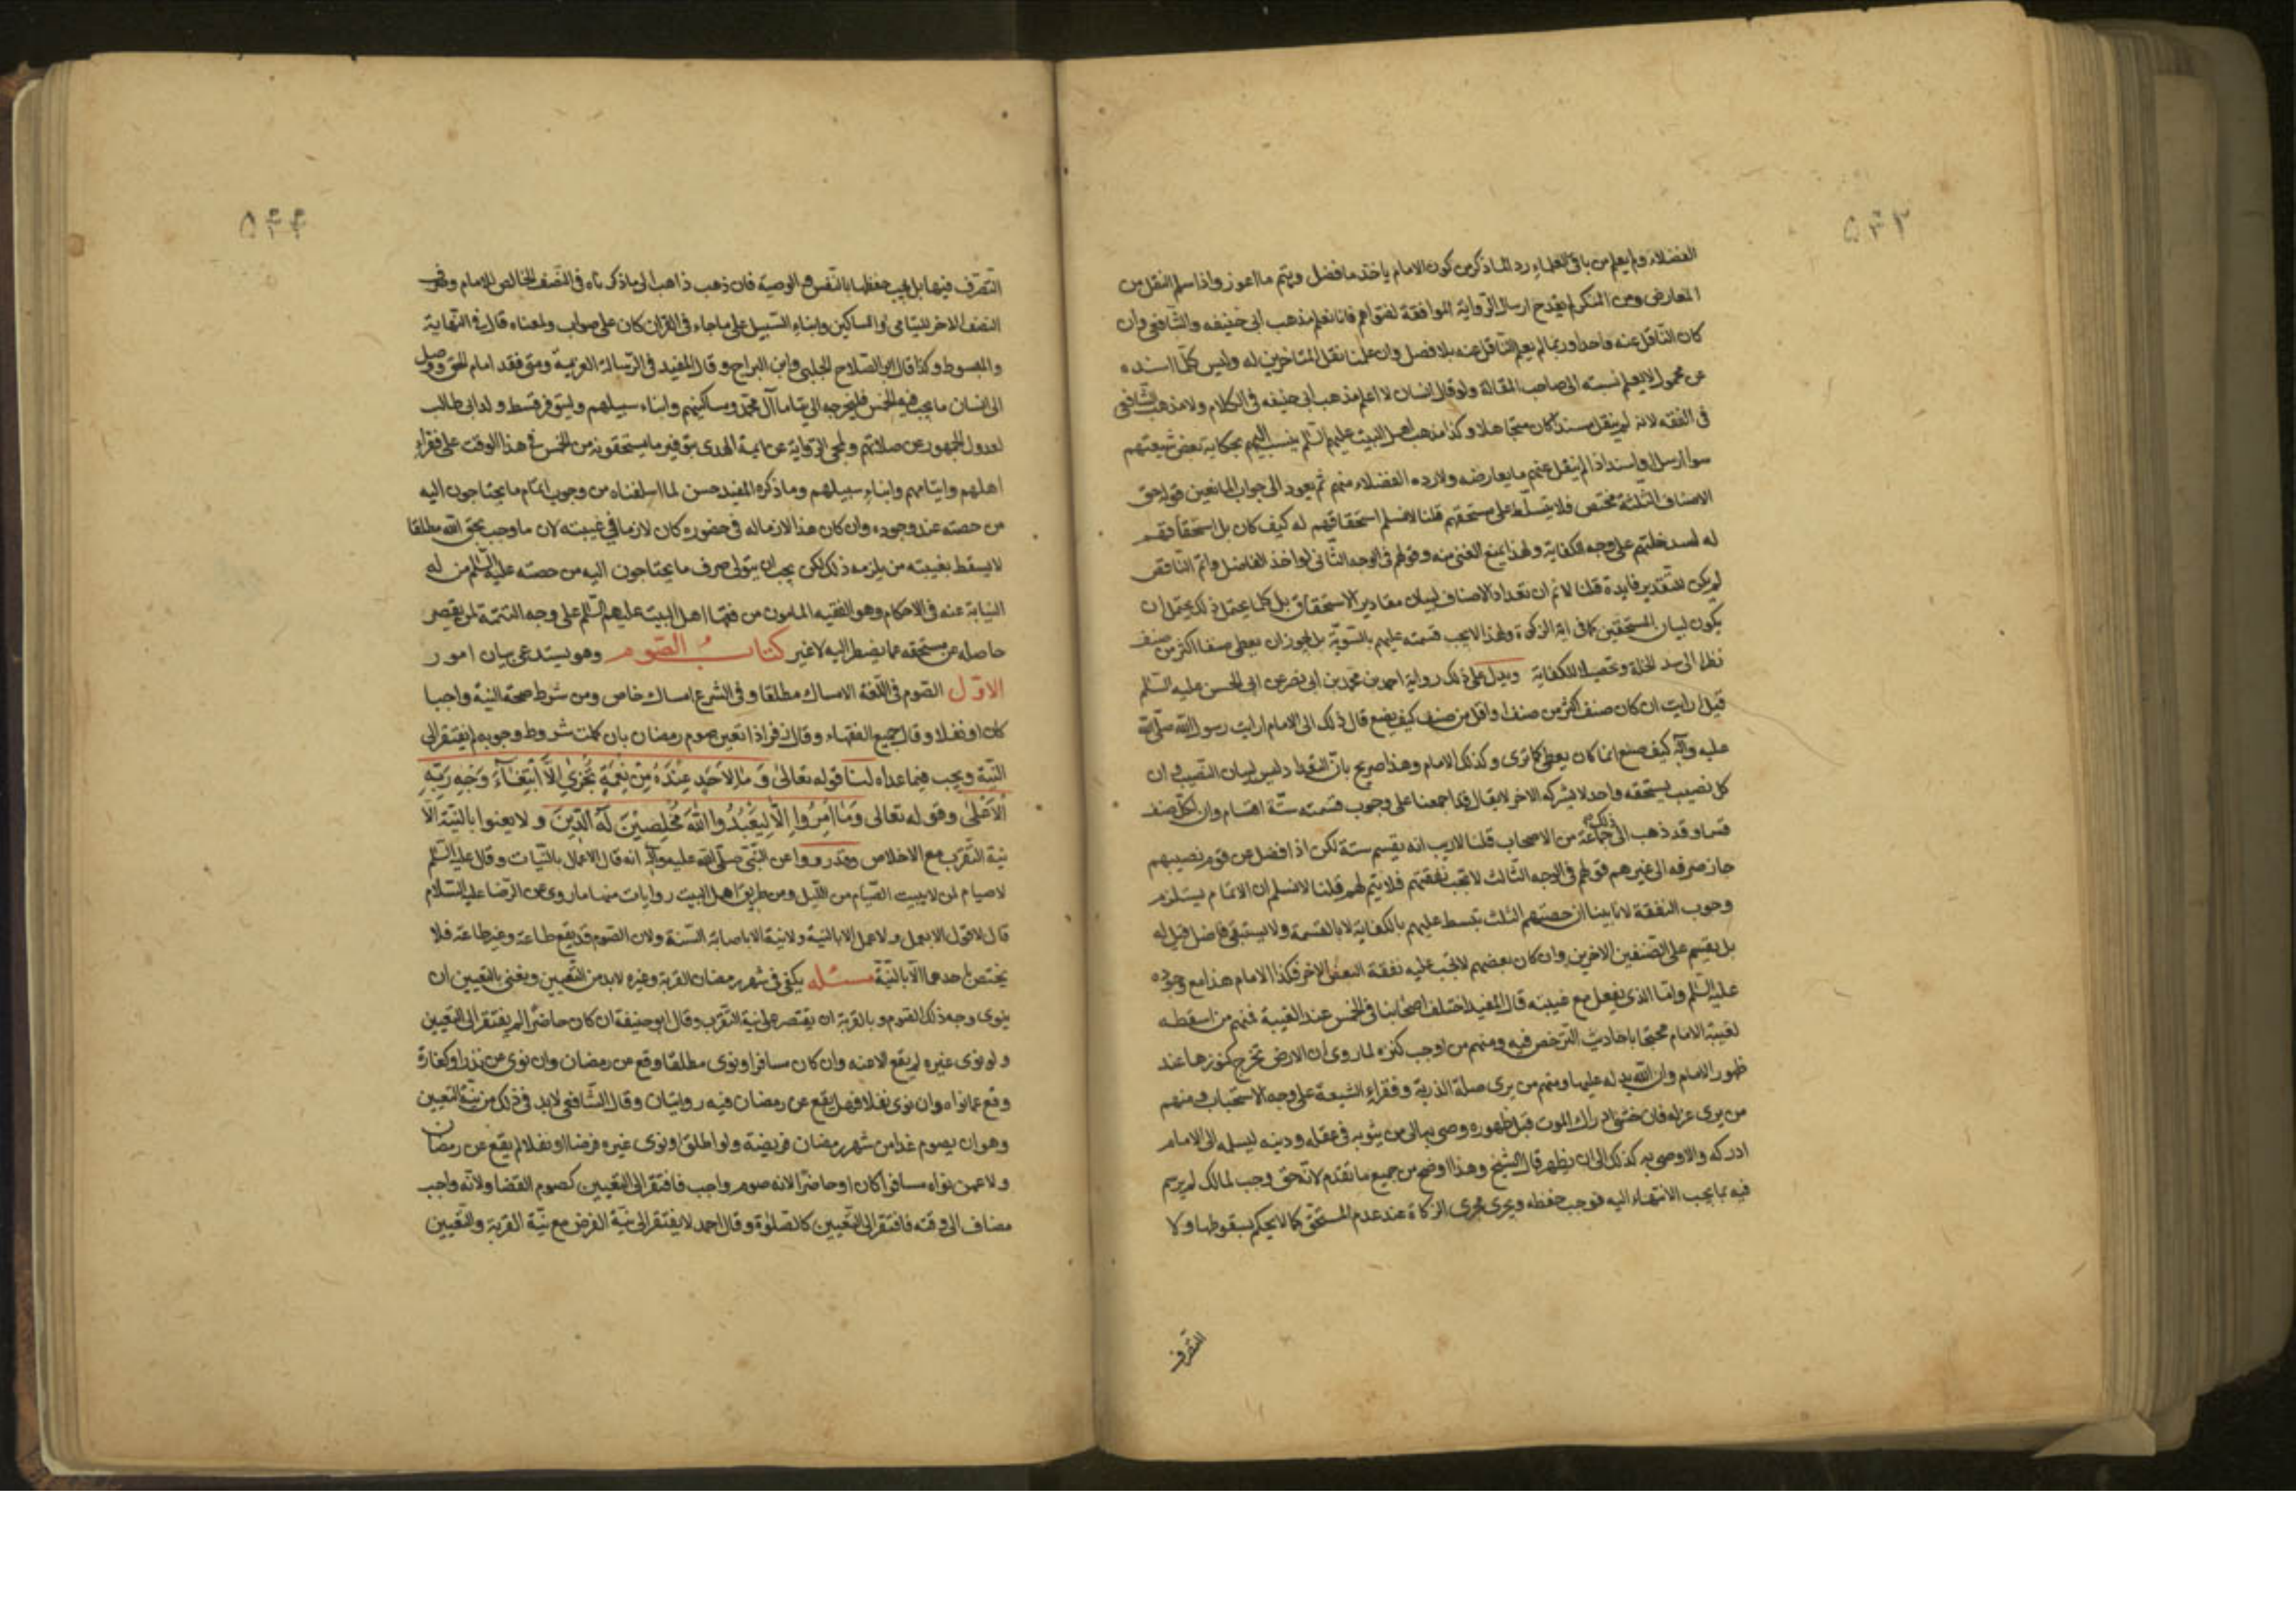 ۵۴۳
الفضلاء ولم يعلم من باقى العلماء رد لما ذكر من كون الامام ياخذ ما فضل ويتم ما اعوز واذا سلم النقل من
المعارض ومن المنكر لم يقدح ارسال الرواية الموافقة لفتواهم فانا نعلم مذهب ابى حنيفه والشافعى وان
كان الناقل عنه واحدا وربما لم يعلم الناقل عنه بلا فصل وان علمنا نقل المتاخرين له وليس كلما اسنده
عن مجهول لا يعلم نسبته الى صاحب المقالة ولو قال انسان لا اعلم مذهب ابى حنيفه فى الكلام ولا مذهب الشافعى
فى الفقه لانه لم ينقل مسندا كان متجاهلا وكذا مذهب اهل البيت عليهم السلم ينسب اليهم بحكاية بعض شيعتهم
سوا ارسل او اسند اذا لم ينقل عنهم ما يعارضه ولا رده الفضلاء منهم ثم يعود الى جواب المانعين قوله حق
الاصناف الثلثة مختص فلا يتسلط على مستحقهم قلنا لا نسلم استحقاقهم له كيف كان بل استحقاقهم
له لسد خلتهم على وجه الكفاية ولهذا يمنع الغنى منه وقولهم فى الوجه الثانى لو اخذ الفاضل واتم الناقص
لم يكن للتقدير فايدة قلنا لا نم ان تعداد الاصناف لبيان مقادير الاستحقاق بل كما يحتمل ذلك يحتمل ان
يكون لبيان المستحقين كما فى اية الزكوة ولهذا لا يجب قسمته عليهم بالسوية بل يجوز ان يعطى صنفا اكثر من صنف
نظرا الى سد الخلة وتحصيلا للكفاية ويدل على ذلك رواية احمد بن محمد بن ابى نصر عن ابى الحسن عليه السلم
قيل ارايت ان كان صنف اكثر من صنف او اقل من صنف كيف يصنع قال ذلك الى الامام ارايت رسول الله صلى الله
عليه وآله كيف صنع انما كان يعطى كما ترى وكذلك الامام وهذا صريح بان التعداد ليس لبيان النصيب فى ان
كل نصيب يستحقه واحد لا يشركه الاخر لا يقال فما اجمعنا على وجوب قسمته ستة اقسام وان لكل صنف
قسما وقد ذهب الى ذلك جماعة من الاصحاب قلنا لا ريب انه يقسم ستة لكن اذا فضل عن قوم نصيبهم
جاز صرفه الى غيرهم قولهم فى الوجه الثالث لا تجب نفقتهم فلا يتم لهم قلنا لا نسلم ان الاتمام يستلزم
وجوب النفقة لانا بينا ان حصتهم الثلث تبسط عليهم بالكفاية لا بالقسمة ولا يستبقى فاضل قبيل له
بل يقسم على الصنفين الاخرين وان كان بعضهم لا تجب عليه نفقة البعض الاخر فكذا الامام هذا مع وجوده
عليه السلم واما الذى يفعل مع غيبته قال المفيد اختلف اصحابنا فى الخمس عند الغيبة فمنهم من اسقطه
لغيبة الامام محتجا باحاديث الترخص فيه ومنهم من اوجب كنزه لما روى ان الارض تخرج كنوزها عند
ظهور الامام وان الله يدله عليها ومنهم من يرى صلة الذرية وفقراء الشيعة على وجه الاستحباب ومنهم
من يرى عزله فان خشى ادراك الموت قبل ظهوره وصى به الى من يثق به فى عقله ودينه ليسلمه الى الامام
ادركه والا وصى به كذلك الى ان يظهر قال الشيخ وهذا اوضح من جميع ما تقدم لانه حق وجب لمالك لم يرسم
فيه ما يجب الانتهاء اليه فوجب حفظه ويجرى مجرى الزكاة عند عدم المستحق فكما لا يحكم بسقوطها ولا
التصرف
۵۴۴
التصرف فيها بل يجب حفظها بالنفس او الوصية فان ذهب ذاهب الى ما ذكرناه فى النصف الخالص للامام وهو
النصف الاخر لليتامى والمساكين وابناء السبيل على ما جاء فى القران كان على صواب ولمعناه قال فى النهاية
والمبسوط وكذا قال ابو الصلاح الحلبى وابن البراج وقال المفيد فى الرسالة العزية ومتى فقد امام الحق ووصل
الى انسان ما يجب فيه الخمس فليخرجه الى يتاما آل محمد ومساكينهم وابناء سبيلهم وليتوفر قسط ولد ابى طالب
لعدول الجمهور عن صلاتهم ولمجى الرواية عن ايمة الهدى بتوفير ما يستحقونه من الخمس فى هذا الوقت على فقراء
اهلهم وايتامهم وابناء سبيلهم وما ذكره المفيد حسن لما اسلفناه من وجوب اتمام ما يحتاجون اليه
من حصته عند وجوده وان كان هذا لازما له فى حضوره كان لازما فى غيبته لان ما وجب بحق الله مطلقا
لا يسقط بغيبته من يلزمه ذلك لكن يجب ان يتولى صرف ما يحتاجون اليه من حصته عليه السلم من له
النيابة عنه فى الاحكام وهو الفقيه المامون من فقها اهل البيت عليهم السلم على وجه التتمة لمن يقصر
حاصله من مستحقه عما يضطر اليه لا غير كتاب الصوم وهو يستدعى بيان امور
الاول الصوم فى اللغة الامساك مطلقا وفى الشرع امساك خاص ومن شرط صحته النية واجبا
كان او نفلا وقال جميع الفقهاء وقال زفر اذا تعين صوم رمضان بان كملت شروط وجوبه لم يفتقر الى
النية ويجب فيما عداه لنا قوله تعالى وَمَا لِأَحَدٍ عِنْدَهُ مِنْ نِعْمَةٍ تُجْزَىٰ إِلَّا ابْتِغَاءَ وَجْهِ رَبِّهِ
الْأَعْلَىٰ وقوله تعالى وَمَا أُمِرُوا إِلَّا لِيَعْبُدُوا اللَّهَ مُخْلِصِينَ لَهُ الدِّينَ ولا يعنوا بالنية الا
نية التقرب مع الاخلاص وقد رووا عن النبى صلى الله عليه وآله انه قال الاعمال بالنيات وقال عليه السلم
لا صيام لمن لا يبيت الصيام من الليل ومن طريق اهل البيت روايات منها ما روى عن الرضا عليه السلام
قال لا قول الا بعمل ولا عمل الا بالنية ولا نية الا باصابة السنة ولان الصوم قد يقع طاعة وغير طاعة فلا
يختص احدهما الا بالنية مسئله يكفى فى شهر رمضان القربة وغيره لا بد من التعيين ونعنى بالتعيين ان
ينوى وجه ذلك الصوم وبالقربة ان يقتصر على نية التقرب وقال ابو حنيفة ان كان حاضرا لم يفتقر الى التعيين
ولو نوى غيره لم يقع الا منه وان كان مسافرا ونوى مطلقا وقع عن رمضان وان نوى عن نذر او كفارة
وقع عما نواه وان نوى نفلا فهل يقع عن رمضان فيه روايتان وقال الشافعى لا بد فى ذلك من نية التعيين
وهو ان يصوم غدا من شهر رمضان فريضة ولو اطلق او نوى غيره فرضا او نفلا لم يقع عن رمضان
ولا عمن نواه مسافرا كان او حاضرا لانه صوم واجب فافتقر الى التعيين كصوم القضا ولانه واجب
مضاف الى وقته فافتقر الى التعيين كالصلوة وقال احمد لا يفتقر الى نية الفرض مع نية القربة والتعيين